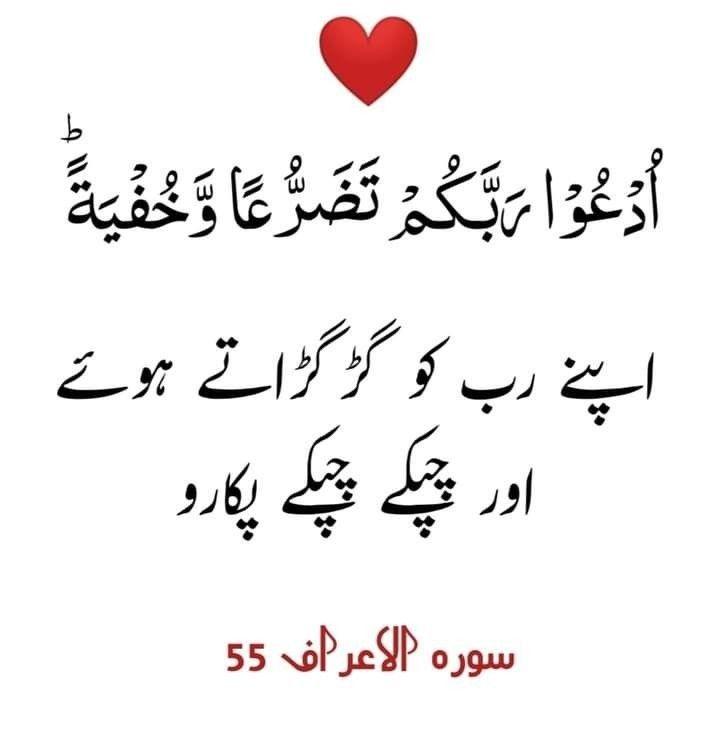 اُدْعُوْا رَبَّكُمْ تَضَرُّعًا وَّخُفْيَةًؕ
اپنے رب کو گڑگڑاتے ہوئے
اور چپکے چپکے پکارو
سورہ الاعراف 55